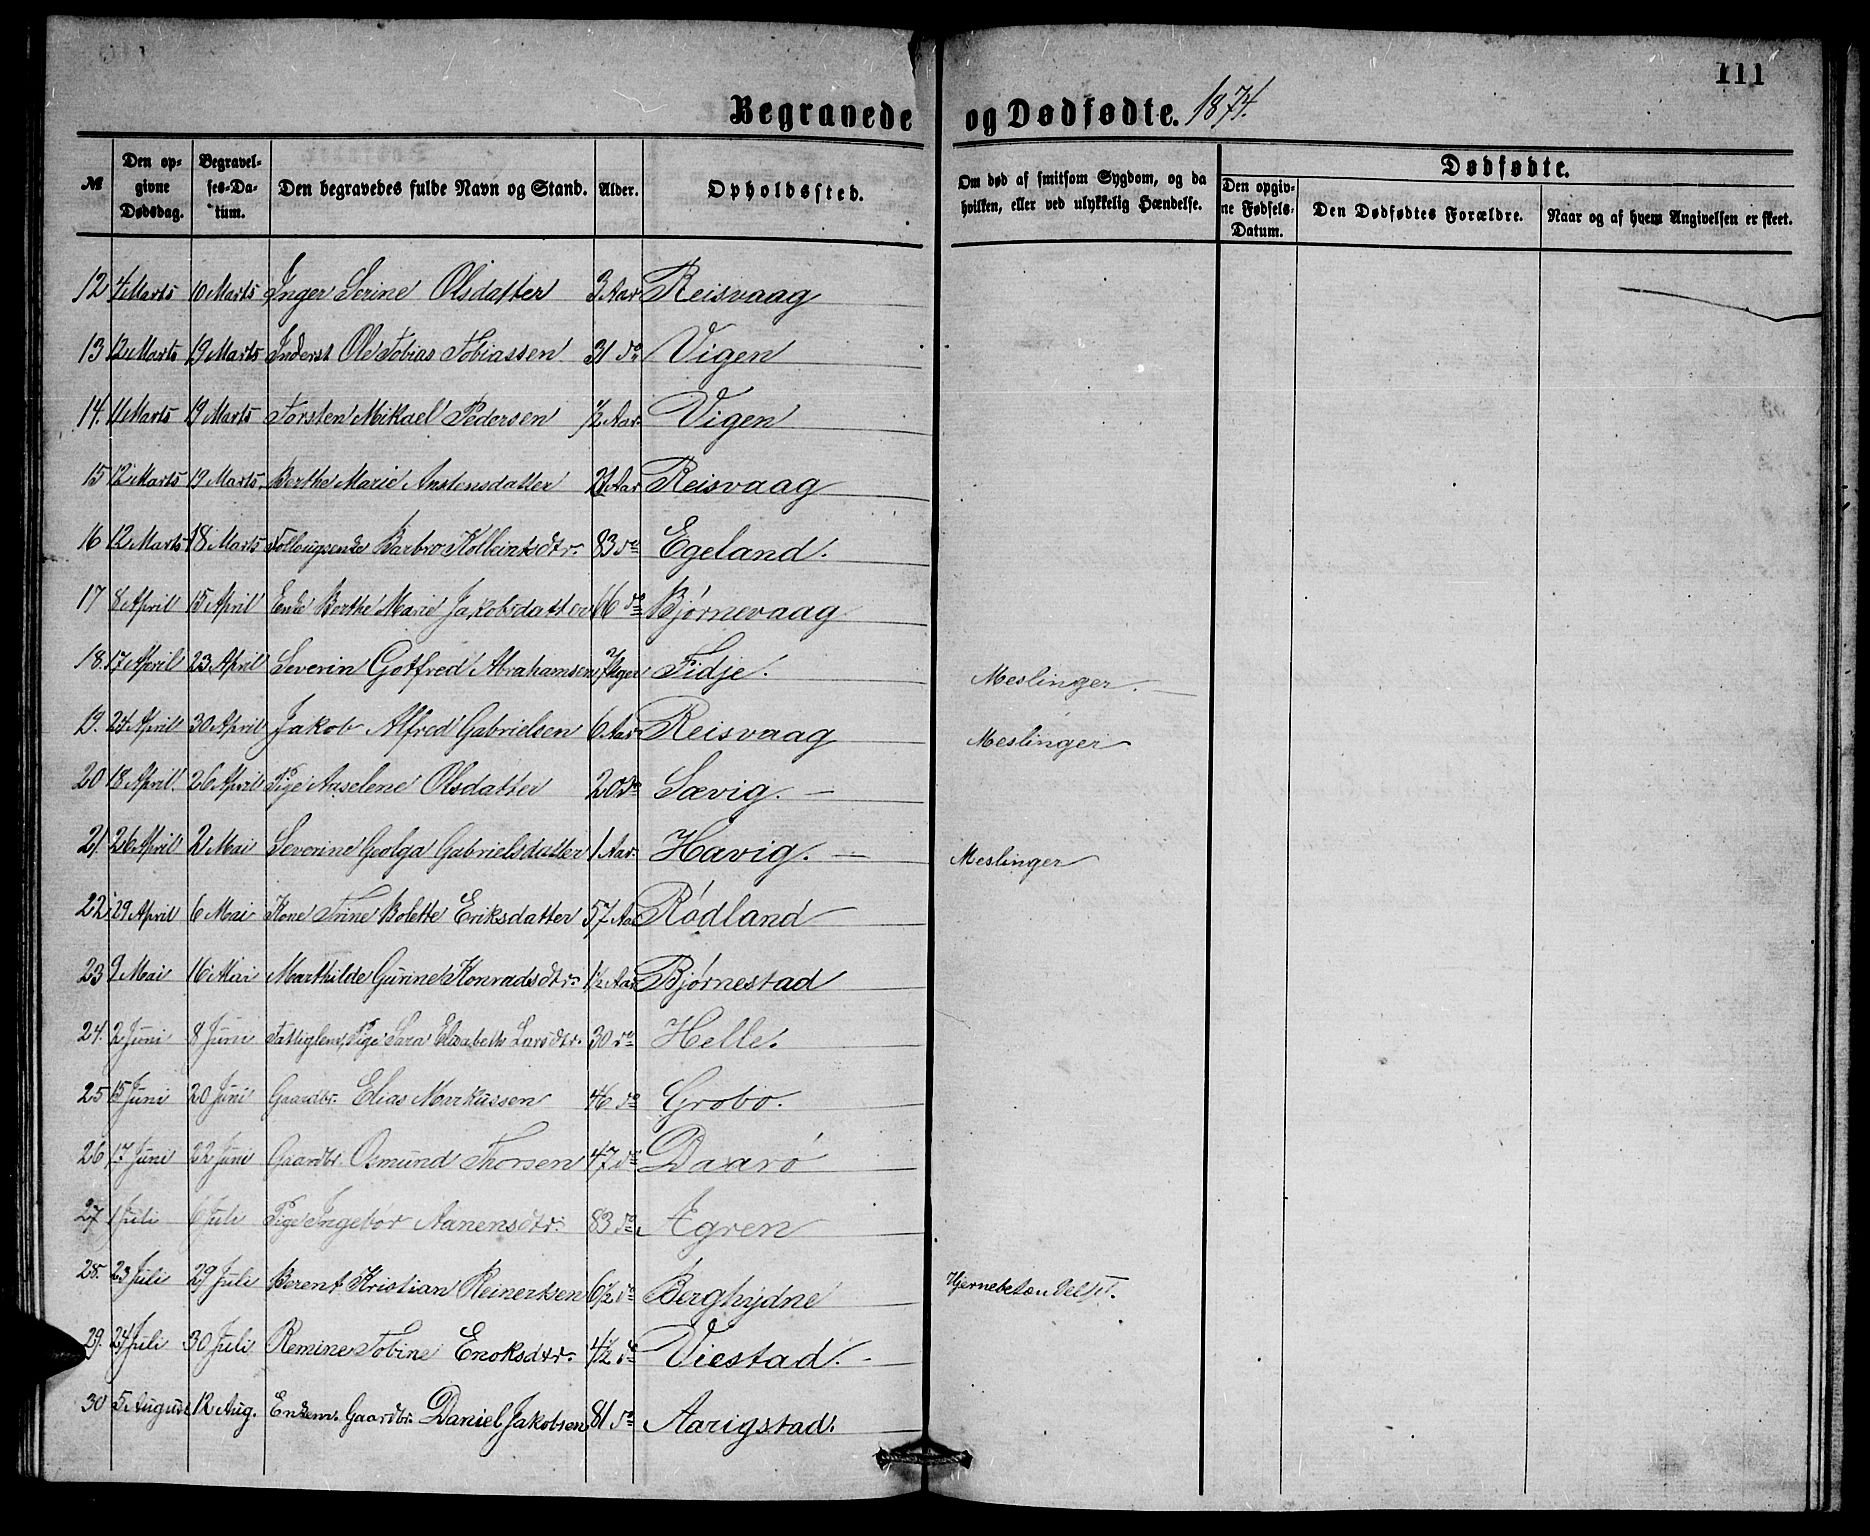 111
Begravede og Dødfødte. 1874.
№ Den opgivne Dødsdag. Begravelses-Datum. Den begravedes fulde Navn og Stand. Alder. Opholdssted. Om død af smitsom Sygdom, og da hvilken, eller ved ulykkelig Hændelse. Dødfødte. Den opgivne Fødsels-Datum. Den Dødfødtes Forældre. Naar og af hvem Angivelsen er skeet.
12 4 Marts 10 Marts Inger Serine Olsdatter 3 Aar Reisvaag
13 12 Marts 19 Marts Inderst Ole Tobias Tobiassen 31 do Vigen
14. 11 Marts 19 Marts Torsten Mikael Pedersen 1/2 Aar Vigen
15 12 Marts 19 Marts Berthe Marie Anstensdatter Aar Reisvaag
16 12 Marts 18 Marts Barbro 83 do Egeland.
17 8 April 15 April Enke Berthe Marie Jakobsdatter 66 do Bjørnevaag
18. 17 April 23 April Severin Gotfred Abrahamsen Uger Fidje. Meslinger.
19. 24 April 30 April Jakob Alfred Gabrielsen 6 Aar Reisvaag Meslinger
20 18 April 26 April Pige Anselene Olsdatter 20 do Sævig.
21. 26 April 2 Mai Severine Geolga Gabrielsdatter 1 Aar Havig. Meslinger
22 29 April 6 Mai Kone Trine Bolette Eriksdatter 57 Aar Rødland
23 9 Mai 16 Mai Marthilde Gurine Konradsdtr. 1 1/2 Aar Bjørnestad
24. 2 Juni 8 Juni Fattiglem, Pige Sara Elisabeth Larsdtr. 30 do Helle.
25 15 Juni 20 Juni Gaardbr. Elias Markussen 46 do Grobo.
26 17 Juni 22 Juni Gaardbr. Osmund Thorsen 47 do
27 1 Juli 6 Juli Pige Ingebor Aanensdtr. 83 do Ægren
28. 23 Juli 29 Juli Berent Kristian Reinertsen 6 1/2 do Berghydne Hjernebetændelse.
29. 24 Juli 30 Juli Remine Tobine Enoksdtr. 4 1/2 do Viestad.
30 5 August 12 Aug. Enkem. Gaardbr. Daniel Jakobsen 81 do Aarigstad.